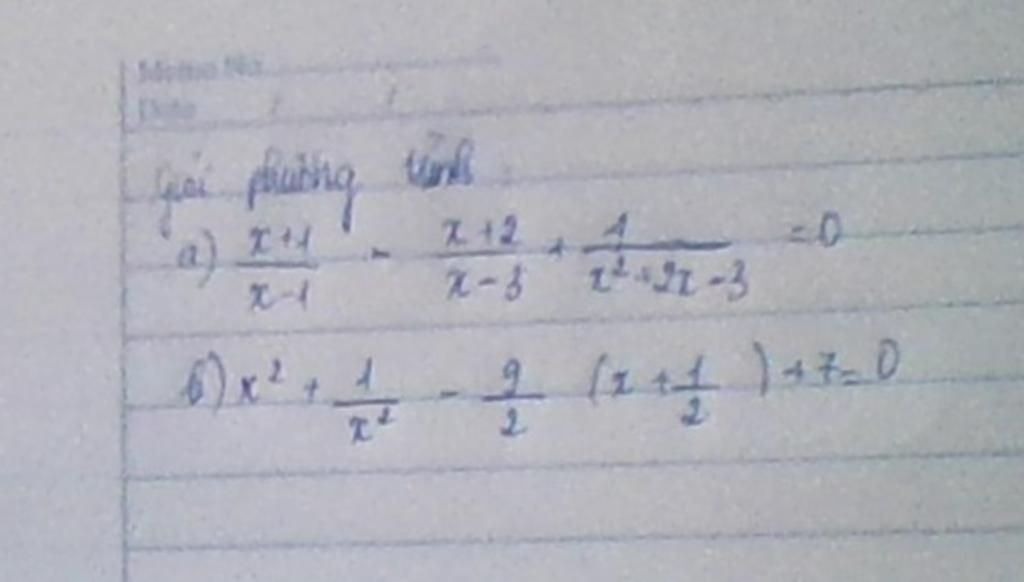 Memo No
Date / /
Giải phương trình :
a) \frac{x+1}{x-1} - \frac{x+2}{x-3} + \frac{1}{x^2+2x-3} = 0
b) x^2 + \frac{1}{x^2} - \frac{9}{2} (x + \frac{1}{2}) + 7 = 0